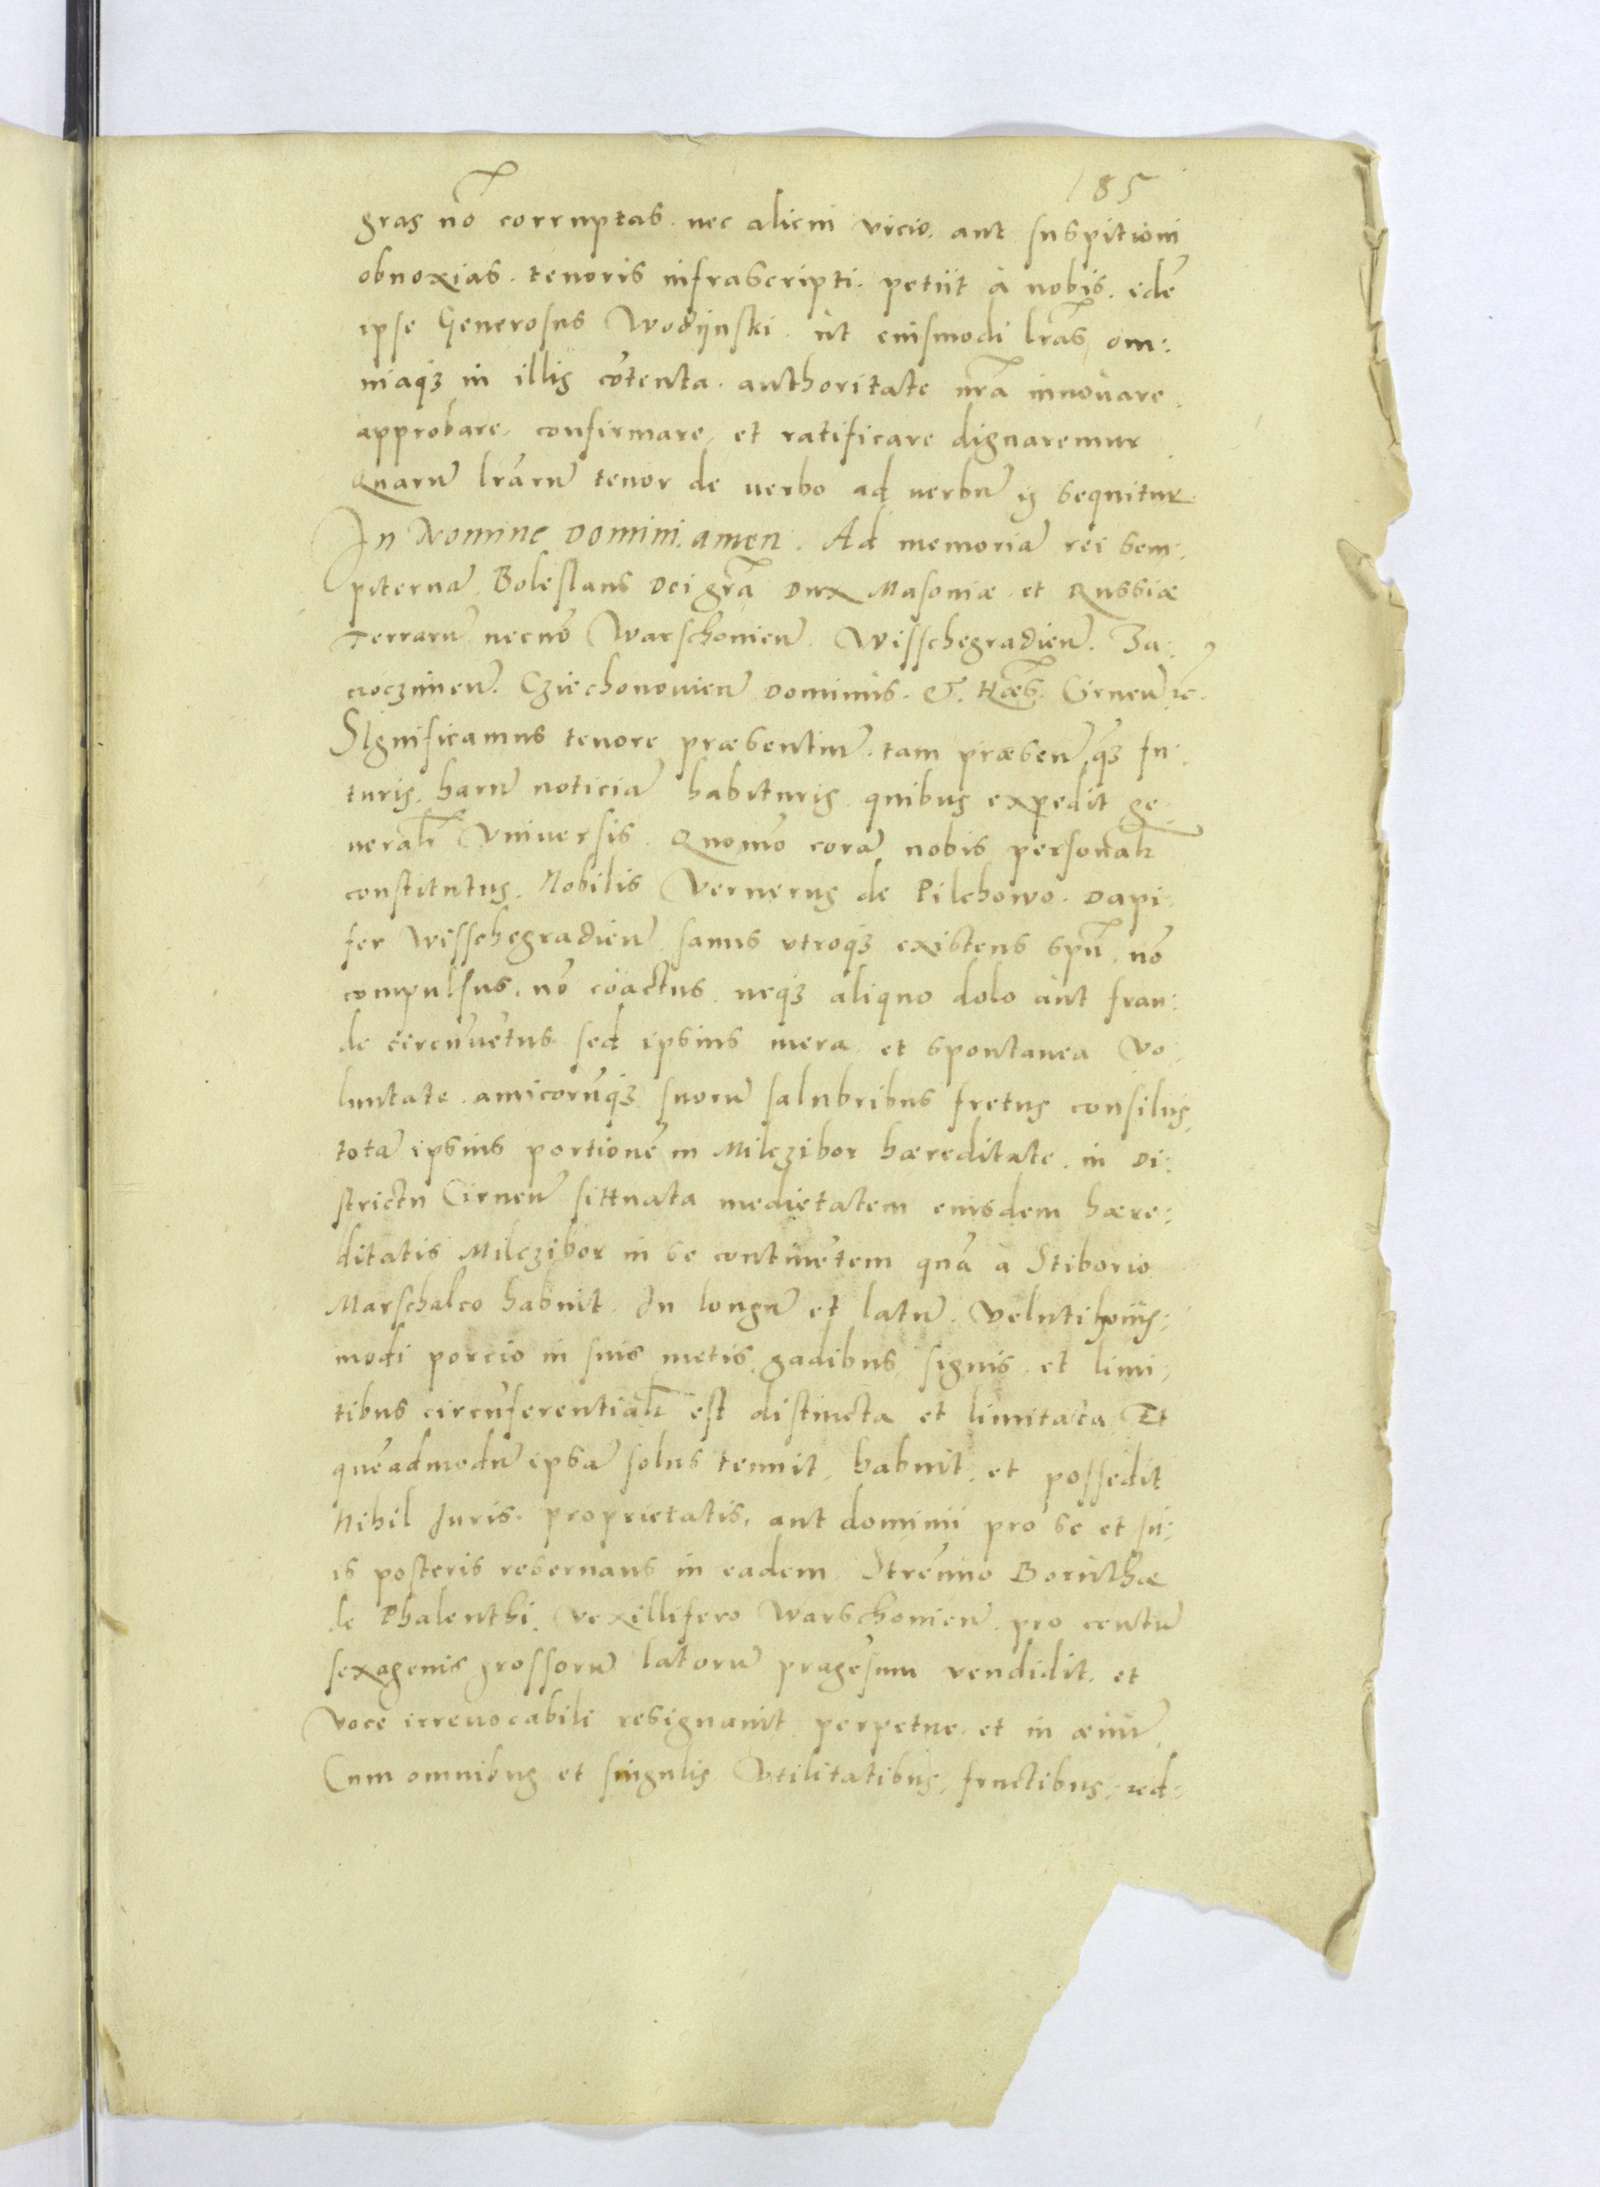 185
gras nō corruptas. nec alicui vicio. aut suspitioni
obnoxias. tenoris infrascripti. petiit à nobis. edē
ipse Generosus Wodijnski. ùt eiusmodi lr̄as om:
niaqȝ in illis cōtenta. authoritate nr̄a innouare.
approbare. confirmare. et ratificare dignaremur
Quarū lr̄arū tenor de uerbo ad uerbū is sequitur.
In Nomine Domini. amen. Ad memoriā rei sem:
piternā. Boleslaus Dei gr̄a Dux Masoniæ et Russiæ
Terrarū necnō Warschouieñ. Wisschegradieñ. Za:
croczimeñ. Cziechonouieñ Dominus. & Hæs. Cirneñ ꝛc.
Significamus tenore præsentiū. tam præseñ. qȝ fu:
turis. harū noticiā habituris. quibus expedit ge:
neral̄r Vniuersis. Quomō corā nobis personal̄r
constitutus. Nobilis Vernerus de Pilchowo. Dapi:
fer Wisschegradieñ sanus utroqȝ existens spū. nō
compulsus. nō coactus. neqȝ aliquo dolo aut frau:
de circūuētus sed ipsius mera et spontanea Vo:
luntate. amicorūqȝ suorū salubribus fretus consilijs
totā ipsius portionē in Milczibor hæreditate. in Di:
strictu Cirneñ sittuata medietatem eiusdem hære:
ditatis Milczibor in se continētem quā à Stiborio
Marschalco habuit. In longū et latū. Veluti huiis:
modi porcio in suis metis, gadibus, signis et limi:
tibus circūferential̄r est distincta et limitata Et
quēadmodū ipsā solus tenuit, habuit et possedit
Nihil Iuris. proprietatis, aut dominii pro se et su:
is posteris reseruans in eadem Strēnuo Boruthæ
de Phalenthi. Vexillifero Warschouieñ. pro centū
sexagenis grossorū latorū pragēsium vendidit. et
Voce irreuocabili resignauit perpetue. et in æuū.
Cum omnibus et singulis Vtilitatibus, fructibus, red: